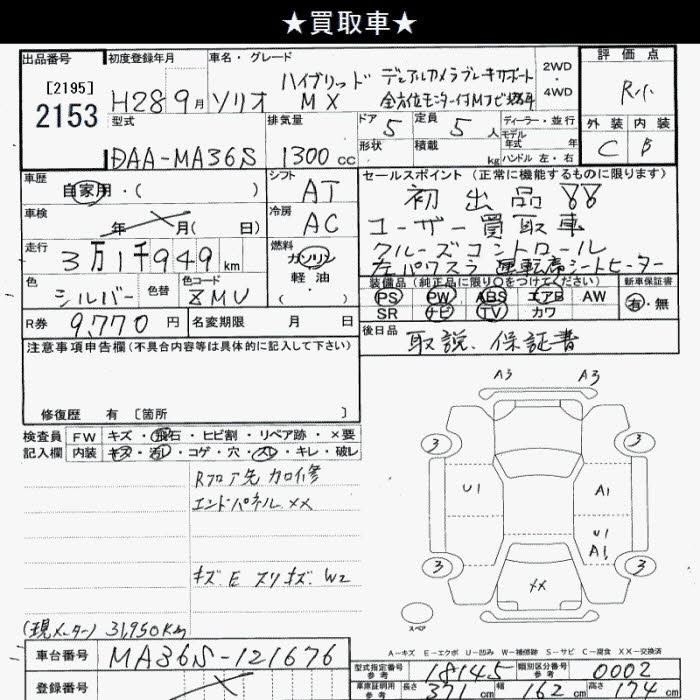 ★買取車★
出品番号 初度登録年月 車名・グレード 2WD・4WD 評価点
[2195]
2153
H28 9月 ソリオ ハイブリッド MX デュアルカメラブレーキサポート
全方位モニター付メモリナビ
R小
型式 排気量 ドア 5 定員 5 人 ディーラー・並行
モデル年式 年
外装 内装
DAA-MA36S 1300cc 形状 積載 kg ハンドル 左・右
C B
車歴 自家用・( )
シフト AT
セールスポイント (正常に機能するものに限ります)
初出品!!
車検 年 月( 日)
冷房 AC
ユーザー買取車
走行 3万1千949km
燃料 ガソリン
軽油
( )
クルーズコントロール
左パワスラ 運転席シートヒーター
色 シルバー 色替 色コード ZMU
装備品(純正品に限り○をつけてください) 新車保証書
PS PW ABS エアB AW 有・無
SR ナビ TV カワ
R券 9,770円 名変期限 月 日
後日品 取説、保証書
注意事項申告欄(不具合内容等は具体的に記入して下さい)
修復歴 有 [箇所 ]
検査員 FW キズ・飛石・ヒビ割・リペア跡・×要
記入欄 内装 キズ・汚レ・コゲ・穴・スレ・キレ・破レ
Rフロア先 カロ修
エンドパネル ××
キズ E スリキズ W2
A3 A3
3 3
U1 A1
U1
A1
3 3
××
スペア
A-キズ E-エクボ U-凹み W-補修跡 S-サビ C-腐食 XX-交換済
(現メーター) 31,950km
車台番号 MA36S-121676
登録番号
型式指定番号 参考 18145 類別区分番号 参考 0002
車庫証明用 参考 長さ 371cm 幅 162cm 高さ 174cm